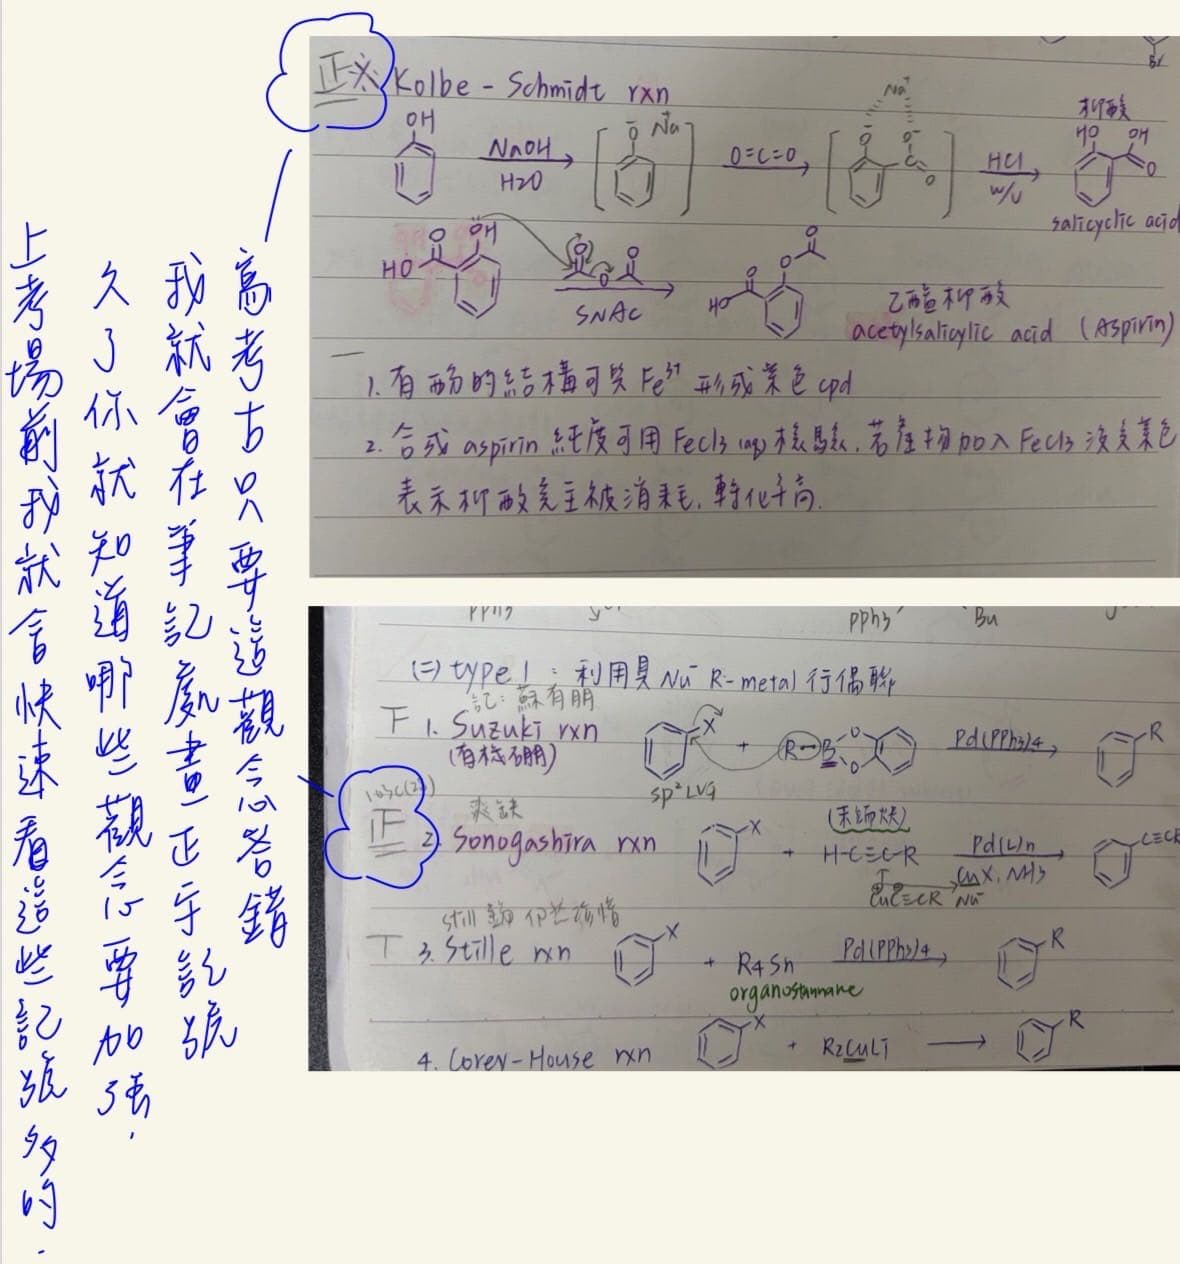 寫考古只要這觀念答錯
我就會在筆記處畫正字記號
久了你就知道哪些觀念要加強.
上考場前我就會快速看這些記號多的.
正 Kolbe - Schmidt rxn
OH
NaOH
H2O
O⁻ Na⁺
O=C=O
Na⁺
O⁻ O⁻
C
O
HCl
w/u
柳酸
HO OH
O
salicyclic acid
Br
HO O OH
O O O
SNAc
HO O O O
乙醯柳酸
acetylsalicylic acid (Aspirin)
1. 有酚的結構可與 Fe³⁺ 形成紫色 cpd
2. 合成 aspirin 純度可用 FeCl3 (aq) 檢驗. 若產物加入 FeCl3 沒變紫色
表示柳酸完全被消耗, 轉化率高.
PPh3
PPh3 Bu
(二) type 1 : 利用具 Nu⁻ R-metal 行偶聯
記: 蘇有朋
下 1. Suzuki rxn
(有機硼)
X
sp² LVG
+ R-B O O
Pd(PPh3)4
R
正 2. Sonogashira rxn
X
(末端炔)
+ H-C≡C-R
CuC≡CR Nu⁻
Pd(L)n
CuX, NH3
C≡CR
T 3. Stille rxn
X
+ R4Sn
organostannane
Pd(PPh3)4
R
4. Corey-House rxn
X
+ R2CuLi
R